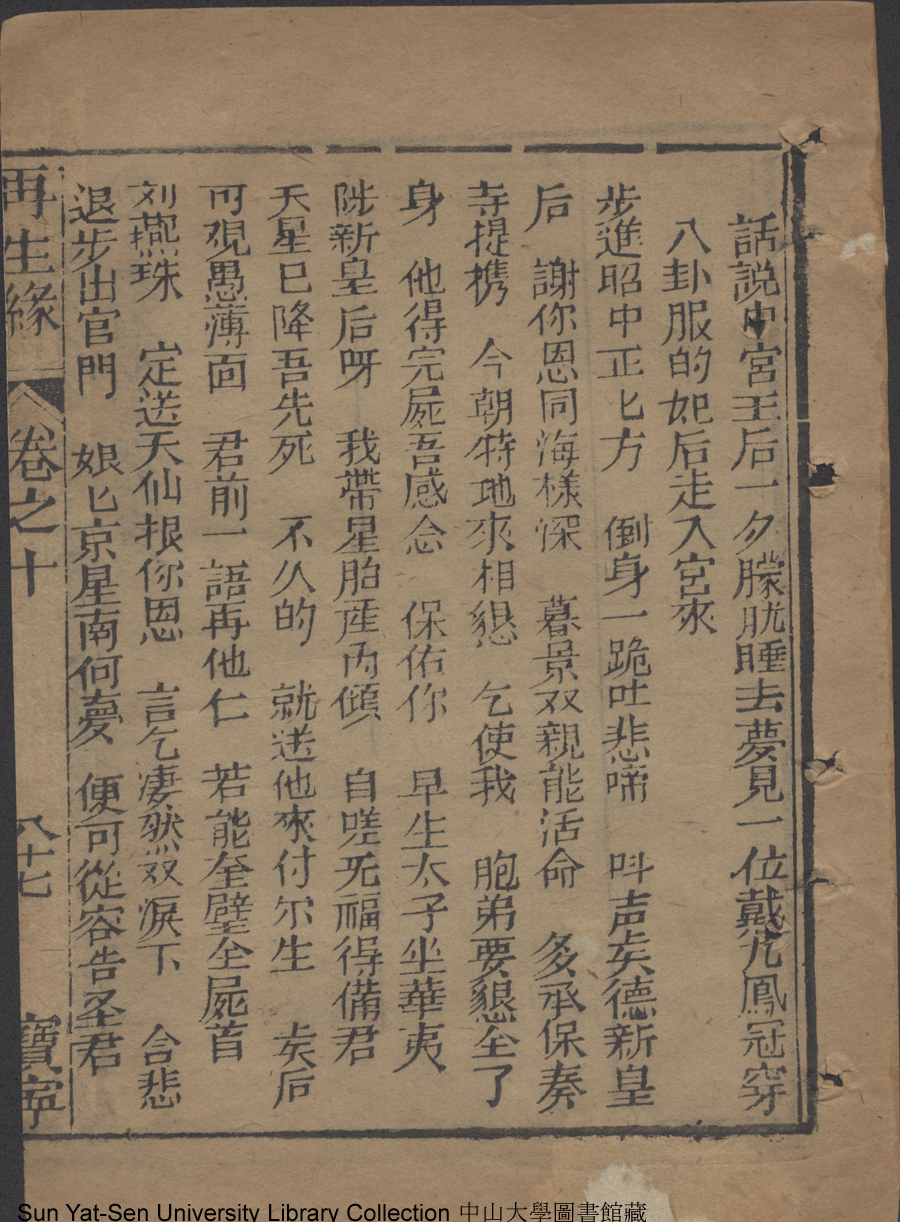 話説中宮王后一勿朦胧睡去夢見一位戴九鳳冠穿
八卦服的妃后走入宮來
步進昭中正匕方 倒身一跪吐悲啼 呌声矣德新皇
后 謝你恩同海樣深 暮景双親能活命 多承保奏
寺提携 今朝特地來相懇 乞使我 胞弟要懇全了
身 他得完屍吾感念 保佑你 早生太子坐華夷
陛新皇后呀 我帶星胎産内傾 自嗟无福得備君
天星已降吾先死 不久的 就送他來付尔生 矣后
可覌愚薄面 君前一語再他仁 若能全璧全屍首
刘燕珠 定送天仙根你恩 言乞凄然双淚下 合悲
退步出官門 娘匕京星南何憂 便可從容告圣君
再生緣 卷之十 八十七 寶寧
Sun Yat-Sen University Library Collection 中山大學圖書館藏